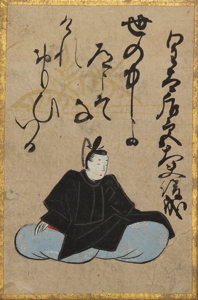 皇太后宮大夫俊成
世の中よ
道こそな
けれ
おもひいる